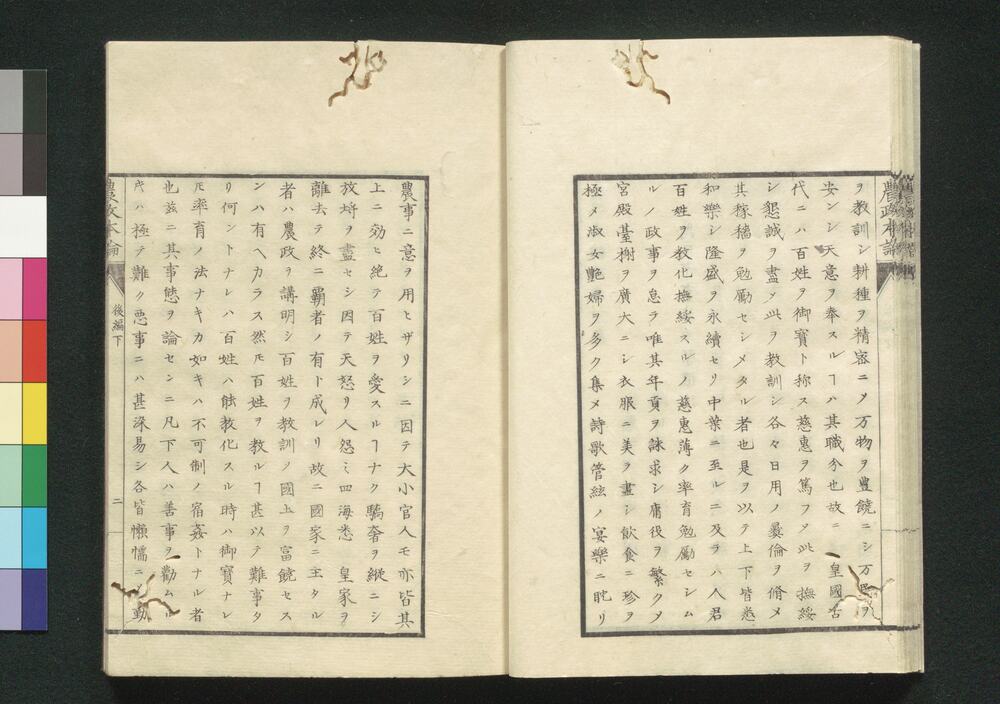 農政本論
ヲ教訓シ耕種ヲ精密ニメ万物ヲ豊饒ニシ万民ヲ
安ンシ天意ヲ奉スルヿハ其職分也故ニ 皇國古
代ニハ百姓ヲ御寳ト称ス慈惠ヲ篤フメ此ヲ撫綏
シ懇誠ヲ盡メ此ヲ教訓シ各々日用ノ彛倫ヲ脩メ
其稼穡ヲ勉勵セシメタル者也是ヲ以テ上下皆悉
和樂シ隆盛ヲ永續セリ中葉ニ至ルニ及ラハ人君
百姓ヲ教化撫綏スルノ慈惠薄ク率育勉勵セシム
ルノ政事ヲ怠ラ唯其年貢ヲ誅求シ庸役ヲ繁クメ
宮殿臺榭ヲ廣大ニシ衣服ニ美ヲ盡シ飲食ニ珍ヲ
極メ淑女艶婦ヲ多ク集メ詩歌管絃ノ宴樂ニ耽リ
農事ニ意ヲ用ヒザリシニ因テ大小官人モ亦皆其
上ニ効ヒ絶テ百姓ヲ愛スルヿナク驕奢ヲ縦ニシ
放埒ヲ盡セシ因テ天怒リ人怨ミ四海悉 皇家ヲ
離去テ終ニ覇者ノ有ト成レリ故ニ國家ニ主タル
者ハ農政ヲ講明シ百姓ヲ教訓ノ國土ヲ富饒セス
ンハ有ヘカラス然𪜈百姓ヲ教ルヿ甚以テ難事タ
リ何ントナレハ百姓ハ能教化スル時ハ御寳ナレ
𪜈率育ノ法ナキカ如キハ不可制ノ宿姦トナル者
也茲ニ其事態ヲ論センニ凡下人ハ善事ヲ勸ムル
ハ極テ難ク悪事ニハ甚深易シ各皆懶惰ニ動
農政本論
後編下
二